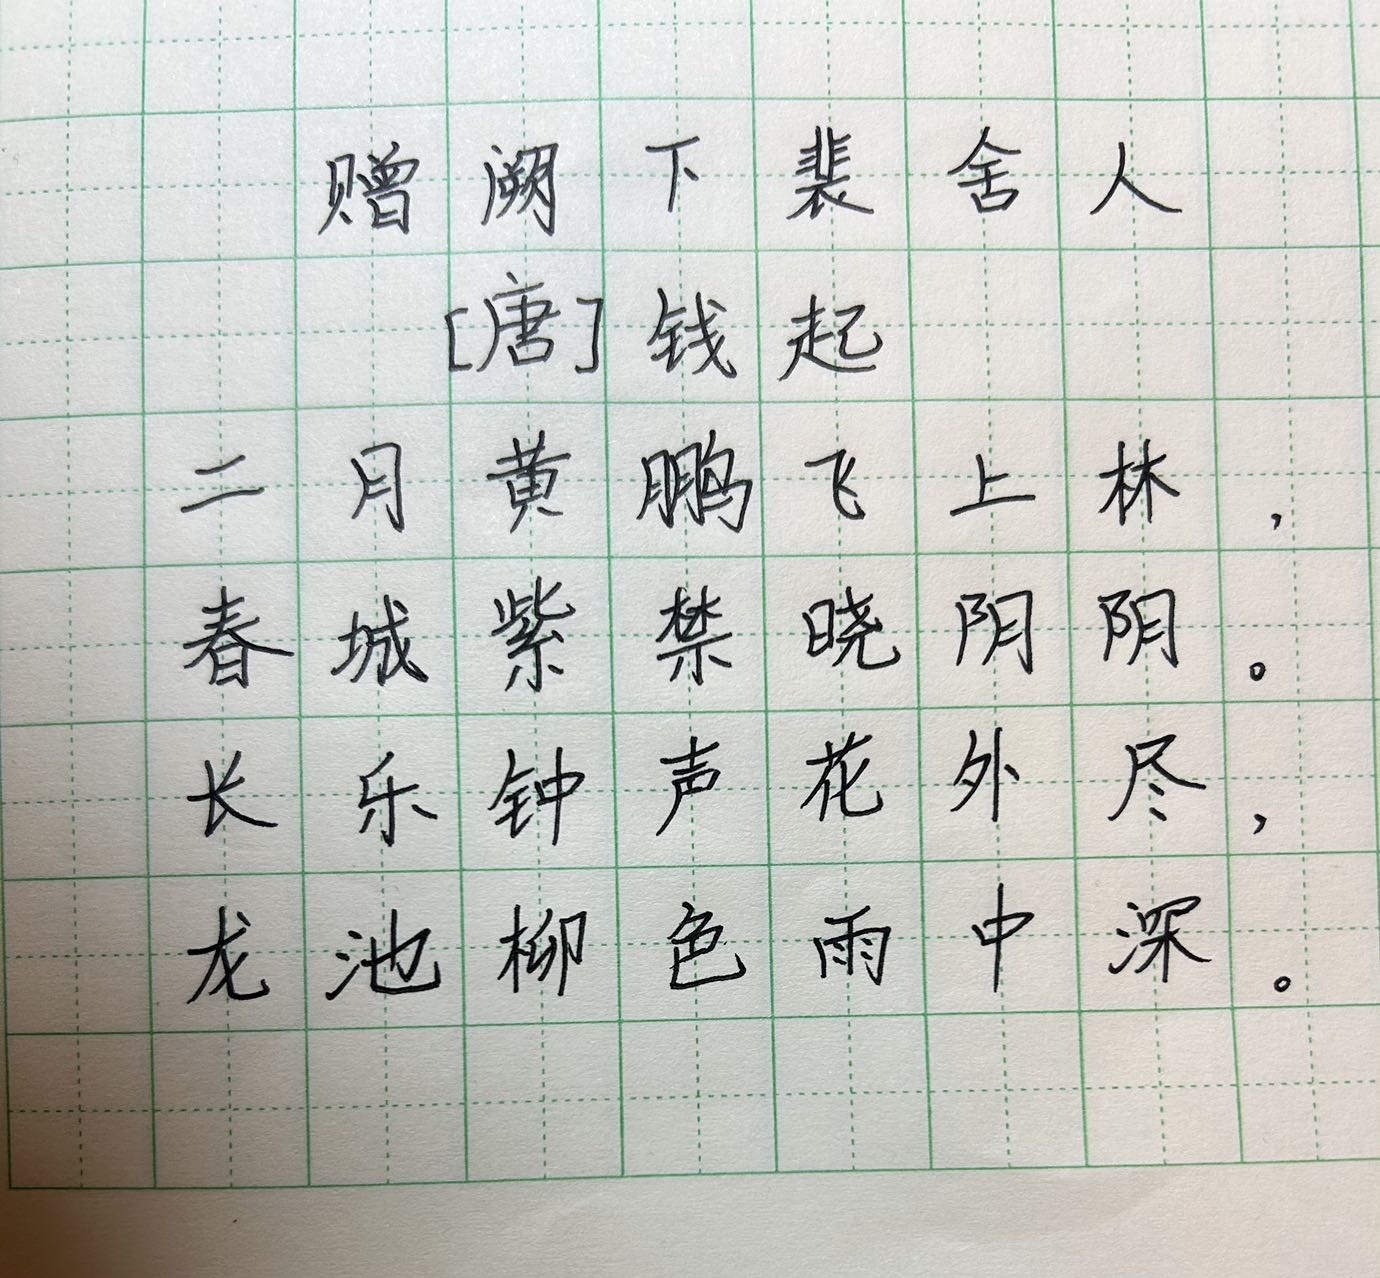 赠阙下裴舍人
[唐]钱起
二月黄鹏飞上林，
春城紫禁晓阴阴。
长乐钟声花外尽，
龙池柳色雨中深。